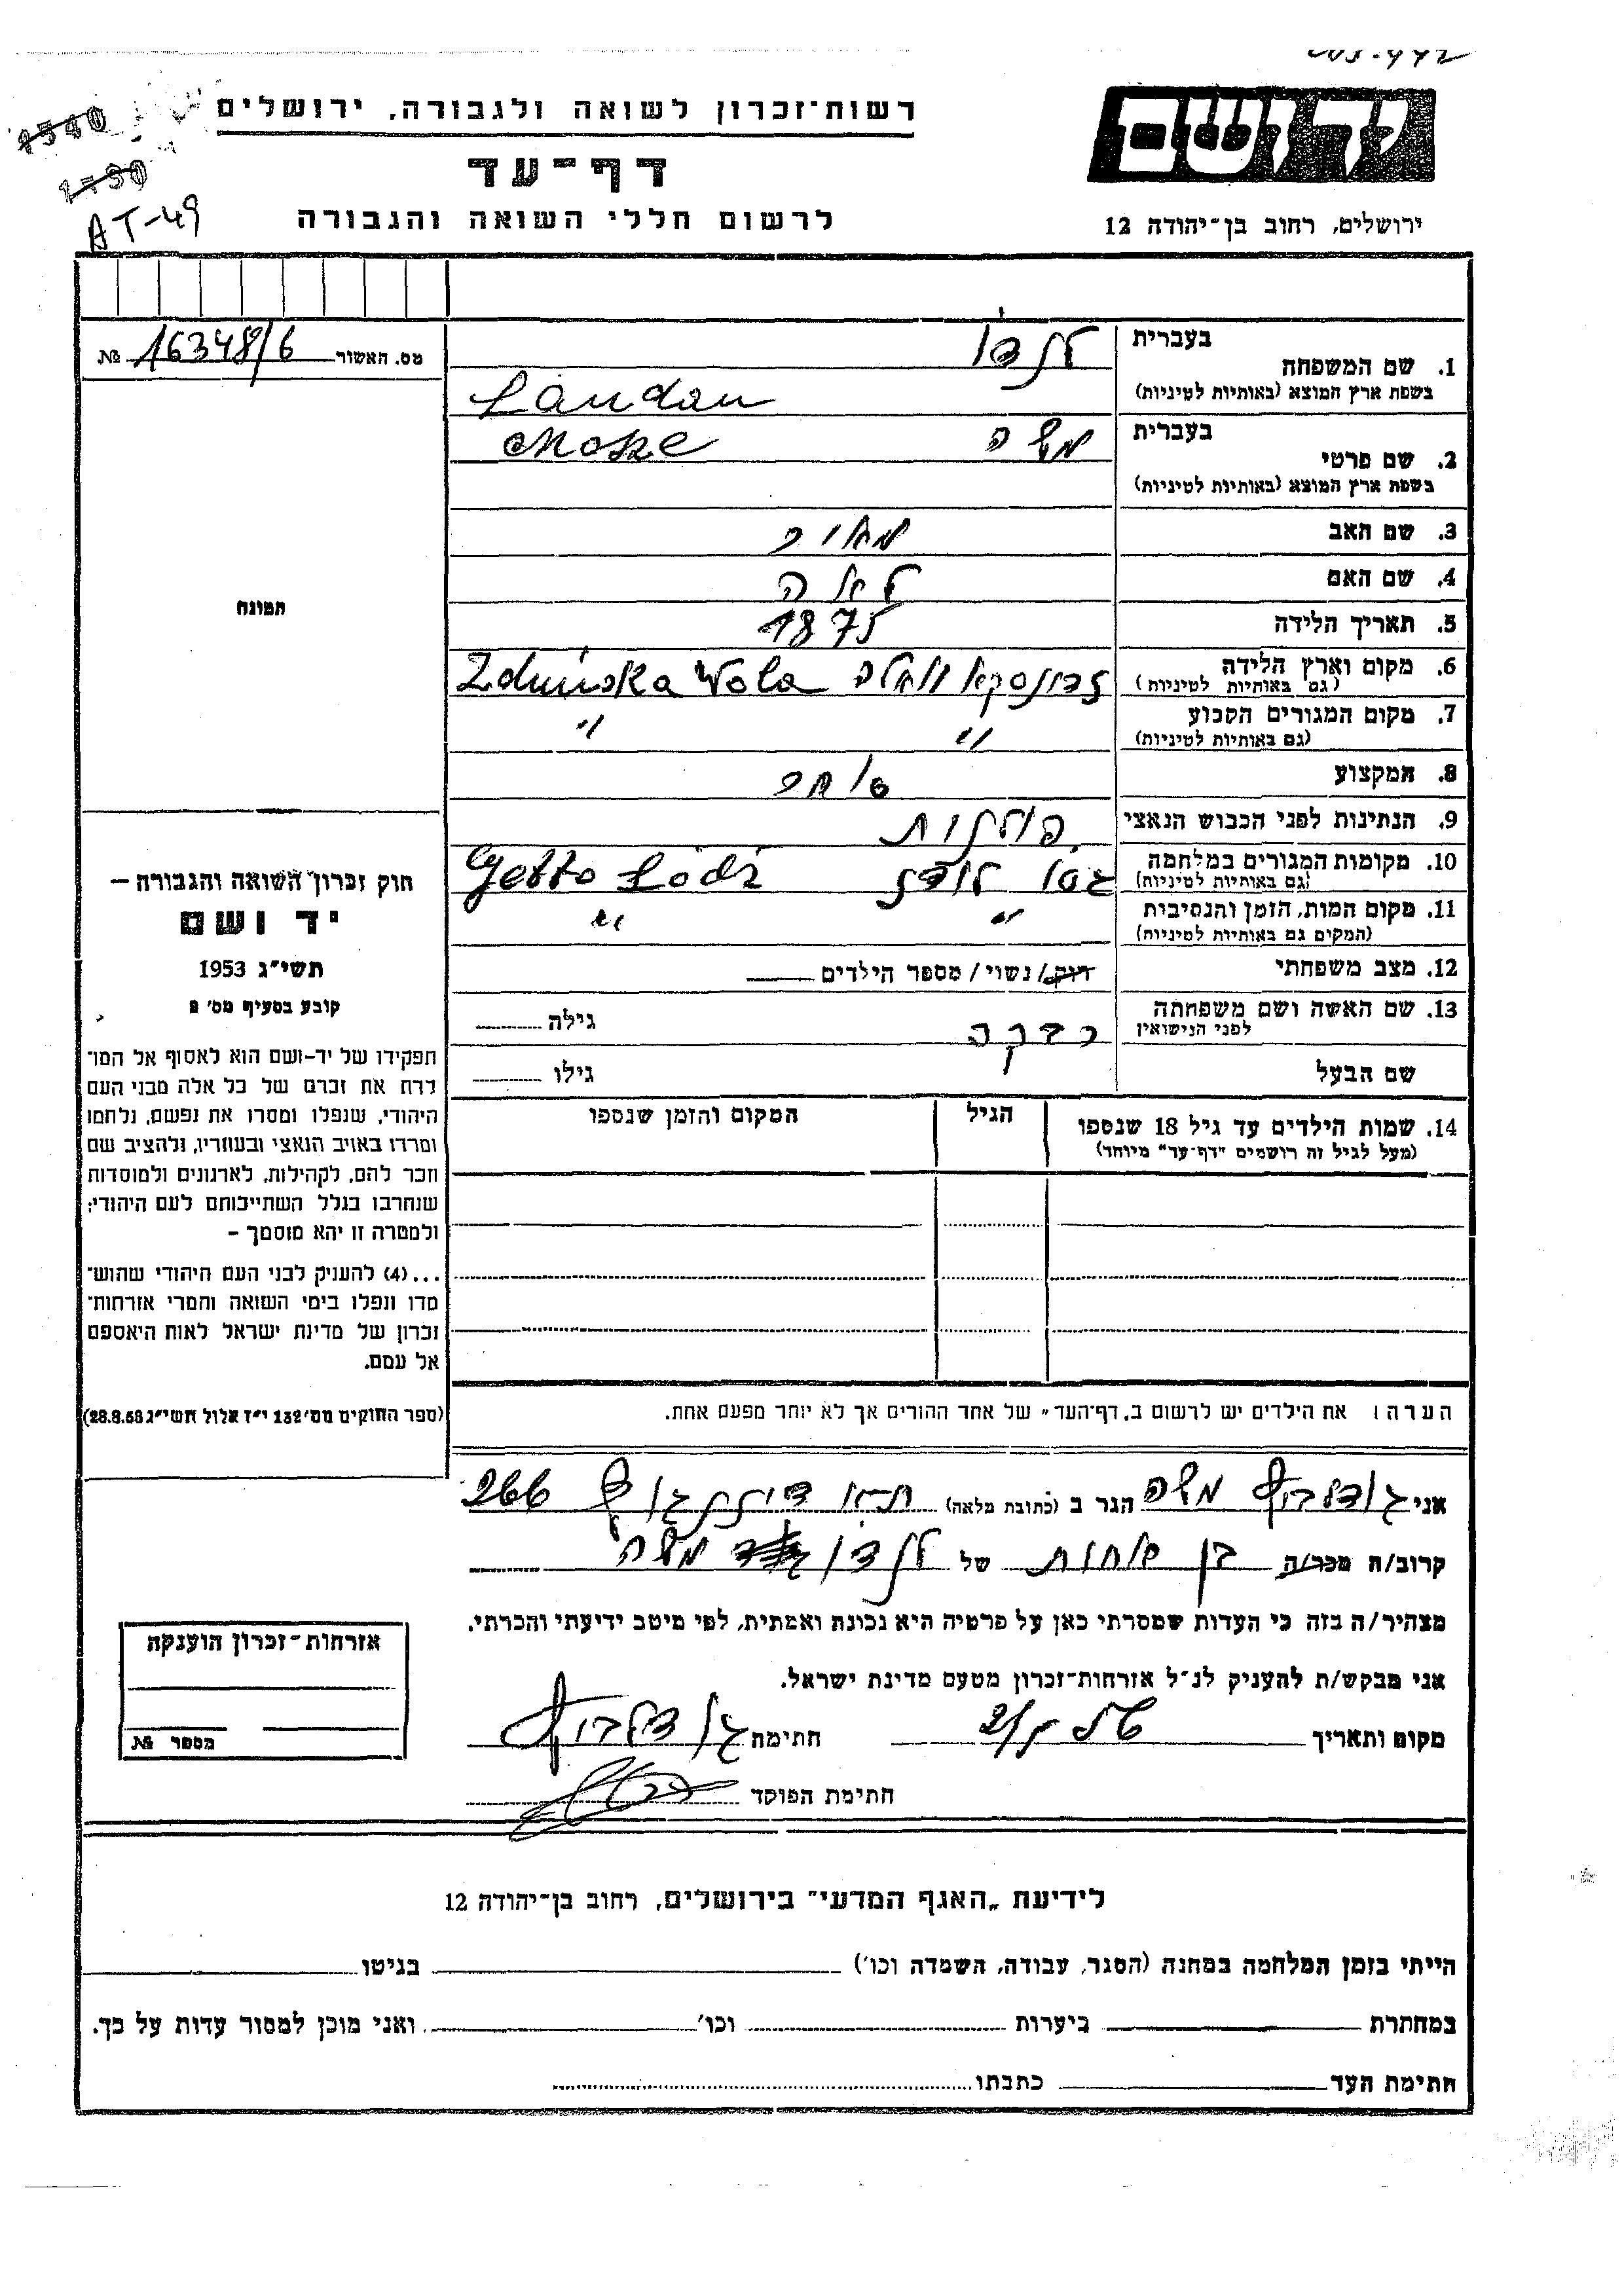 רשות־זכרון לשואה ולגבורה, ירושלים
דף-עד
לרשום חללי השואה והגבורה
יד ושם
ירושלים, רחוב בן־יהודה 12
1540
AT-49
מס. האשור 16348/6 №
תמונה
1. שם המשפחה
בעברית לנדו
בשפת ארץ המוצא (באותיות לטיניות) Landau
2. שם פרטי
בעברית משה Mosze
בשפת ארץ המוצא (באותיות לטיניות)
3. שם האב
4. שם האם לאה
5. תאריך הלידה 1875
6. מקום וארץ הלידה Zduńska Wola
(גם באותיות לטיניות)
7. מקום המגורים הקבוע " "
(גם באותיות לטיניות)
8. המקצוע סוחר
9. הנתינות לפני הכבוש הנאצי פולנית
10. מקומות המגורים במלחמה גטו לודז Getto Łódź
(גם באותיות לטיניות)
11. מקום המות, הזמן והנסיבית " "
(המקום גם באותיות לטיניות)
12. מצב משפחתי רוק/נשוי/ מספר הילדים
13. שם האשה ושם משפחתה רבקה גילה
לפני הנישואין
שם הבעל גילו
14. שמות הילדים עד גיל 18 שנספו הגיל המקום והזמן שנספו
(מעל לגיל זה רושמים "דף־עד" מיוחד)
הערה: את הילדים יש לרשום ב„דף־העד" של אחד ההורים אך לא יותר מפעם אחת.
חוק זכרון השואה והגבורה –
יד ושם
תשי"ג 1953
קובע בסעיף מס' 2
תפקידו של יד-ושם הוא לאסוף אל המו־
לדת את זכרם של כל אלה מבני העם
היהודי, שנפלו ומסרו את נפשם, נלחמו
ומרדו באויב הנאצי ובעוזריו, ולהציב שם
וזכר להם, לקהילות, לארגונים ולמוסדות
שנחרבו בגלל השתייכותם לעם היהודי;
ולמטרה זו יהא מוסמך –
...(4) להעניק לבני העם היהודי שהוש־
מדו ונפלו בימי השואה והמרי אזרחות־
זכרון של מדינת ישראל לאות היאספם
אל עמם.
(ספר החוקים מס' 132 י"ז אלול תשי"ג 28.8.53)
אני משה הגר ב (כתובת מלאה) 266
קרוב/ה מכר/ה בן אחות של לנדו משה
מצהיר/ה בזה כי העדות שמסרתי כאן על פרטיה היא נכונה ואמתית, לפי מיטב ידיעתי והכרתי.
אני מבקש/ת להעניק לנ"ל אזרחות־זכרון מטעם מדינת ישראל.
מקום ותאריך חתימה
חתימת הפוקד
אזרחות־זכרון הוענקה
מספר №
לידיעת „האגף המדעי" בירושלים, רחוב בן־יהודה 12
הייתי בזמן המלחמה במחנה (הסגר, עבודה, השמדה וכו') בגיטו
במחתרת ביערות וכו' ואני מוכן למסור עדות על כך.
חתימת העד כתבתו